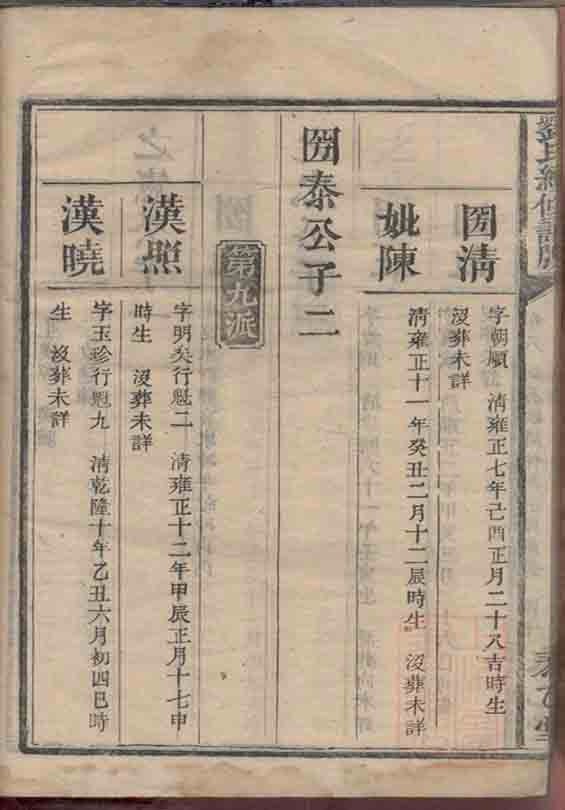 劉氏續修譜
圀清
字朝順 清雍正七年己酉正月二十八吉時生
沒葬未詳
妣陳
清雍正十一年癸丑二月十二辰時生 沒葬未詳
圀泰公子二
第九派
漢照
字明矣行魁二 清雍正十二年甲辰正月十七申
時生 沒葬未詳
漢曉
字玉珍行魁九 清乾隆十年乙丑六月初四巳時
生 沒葬未詳